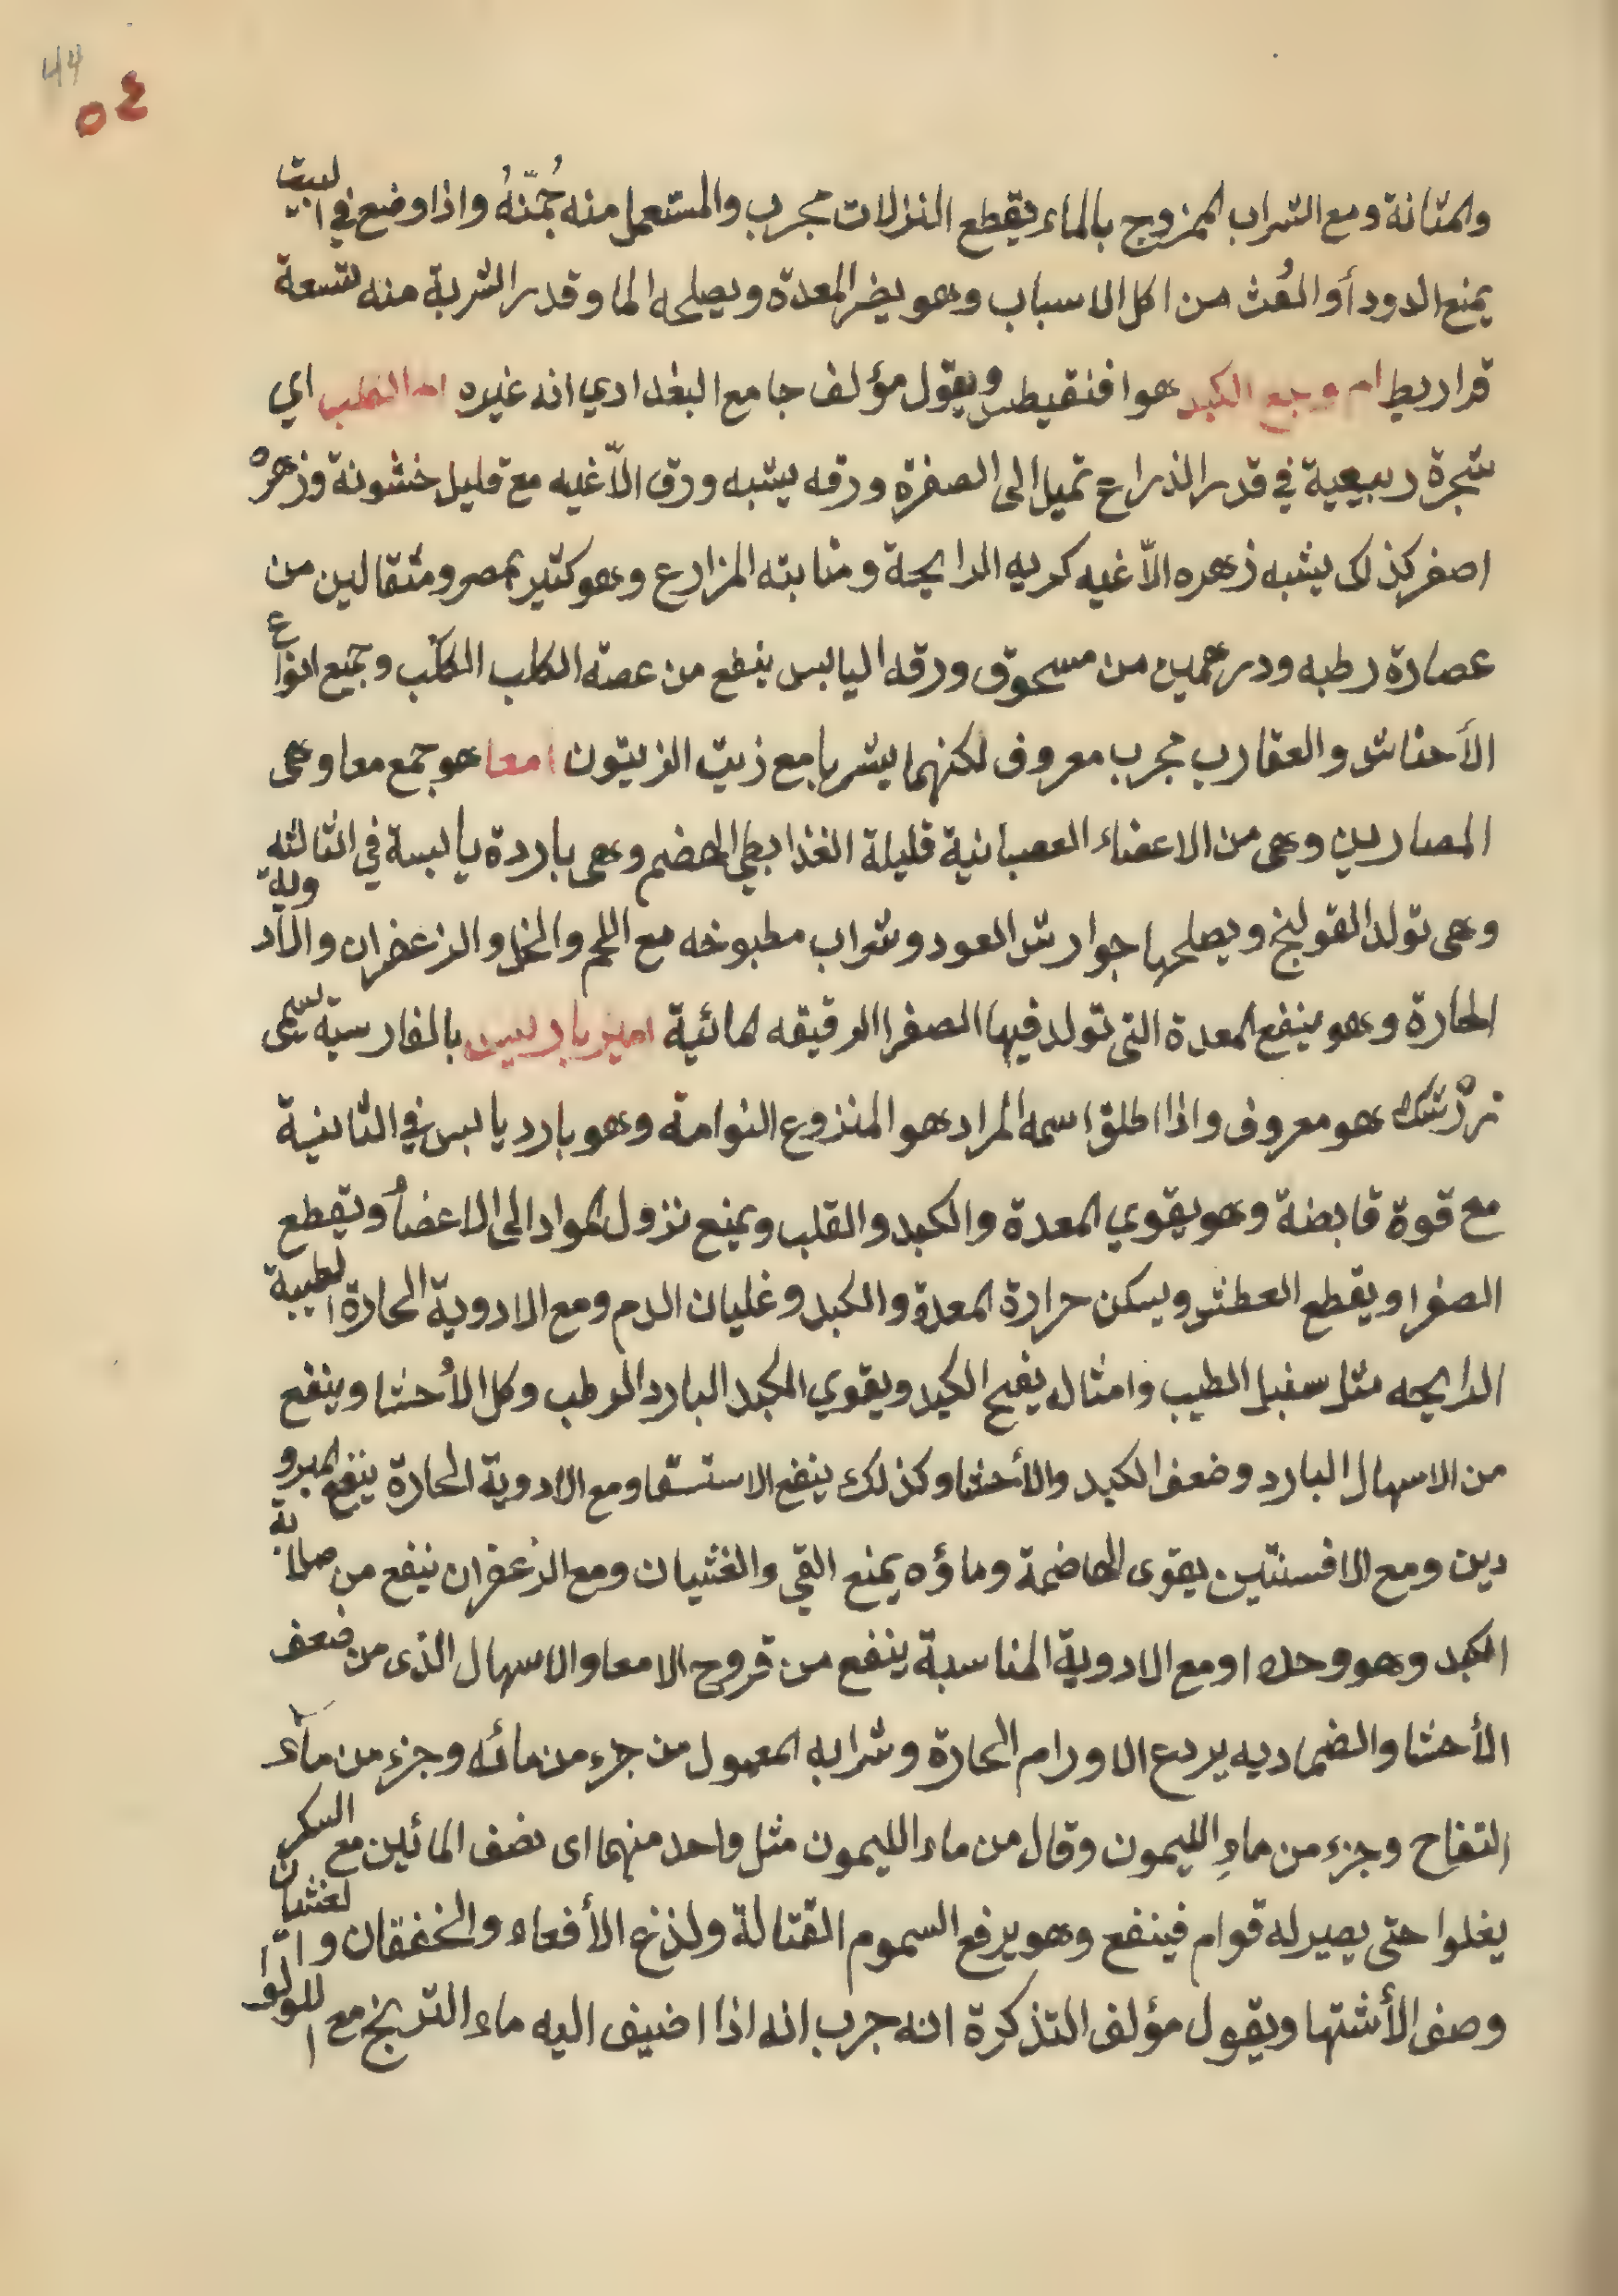 44
٥٤
والمثانة ومع الشراب الممزوج بالماء يقطع النزلات مجرب والمستعمل منه جُمّتهُ واذا وضع في البيت
يمنع الدود أو العُث من اكل الاسباب وهو يضر المعدة ويصلحه الما وقدر الشربة منه تسعة
قراريط ام وجع الكبد هو افنقيطس ويقول مؤلف جامع البغدادي انه غيره ام الكلب اي
شجرة ربيعية في قدر الذراع تميل الى الصفرة ورقه يشبه ورق الآغيه مع قليل خشونة وزهره
اصفر كذلك يشبه زهره الآغيه كريه الرايحة ومنابته المزارع وهو كثير بمصر ومثقالين من
عصارة رطبه ودرهمين من مسحوق ورقه اليابس ينفع من عصة الكلب الكلب وجميع انواع
الأحناش والعقارب مجرب معروف لكنهما يشربا مع زيت الزيتون امعا هو جمع معا وهى
المصارين وهى من الاعضاء العصبانية قليلة الغذا بطئ الهضم وهى باردة يابسة في الثالثه
وهى تولد القولنج ويصلحها جوارش العود وشراب مطبوخه مع اللحم والخل والزعفران والادوية
الحارة وهو ينفع المعدة التى تولد فيها الصفرا الرقيقه المائية امير باريس بالفارسية تسمى
زرشك هو معروف واذا اطلق اسمه المراد هو المنزوع النوامه وهو بارد يابس في الثانية
مع قوة قابضة وهو يقوي المعدة والكبد والقلب ويمنع نزول المواد الى الاعضأ ويقطع
الصفرا ويقطع العطش ويسكن حرارة المعدة والكبد وغليان الدم ومع الادوية الحارة الطيبة
الرايحه مثل سنبل الطيب وامثاله يفيح الكبد ويقوي الكبد البارد الرطب وكل الأحشا وينفع
من الاسهال البارد وضعف الكبد والأحشا وكذلك ينفع الاستسقا ومع الادوية الحارة ينفع المبرو
دين ومع الافسنتين يقوى الهاضمة وماؤه يمنع القي والغثيان ومع الزعفران ينفع من صلابة
الكبد وهو وحده او مع الادوية المناسبة ينفع من قروح الامعا والاسهال الذى من ضعف
الأحشا والضماد به يردع الاورام الحارة وشرابه المعمول من جزء من مائه وجزء من مآء
التفاح وجزء من ماءِ الليمون وقال من ماء الليمون مثل واحد منهما اى نصف المائين مع السكر
يغلوا حتى يصير له قوام فينفع وهو يرفع السموم القتالة ولذع الأفعاء والخفقان والغثيان
وصف الأشتها ويقول مؤلف التذكرة انه جرب انه اذا اضيف اليه ماء الترنج مع اللولو